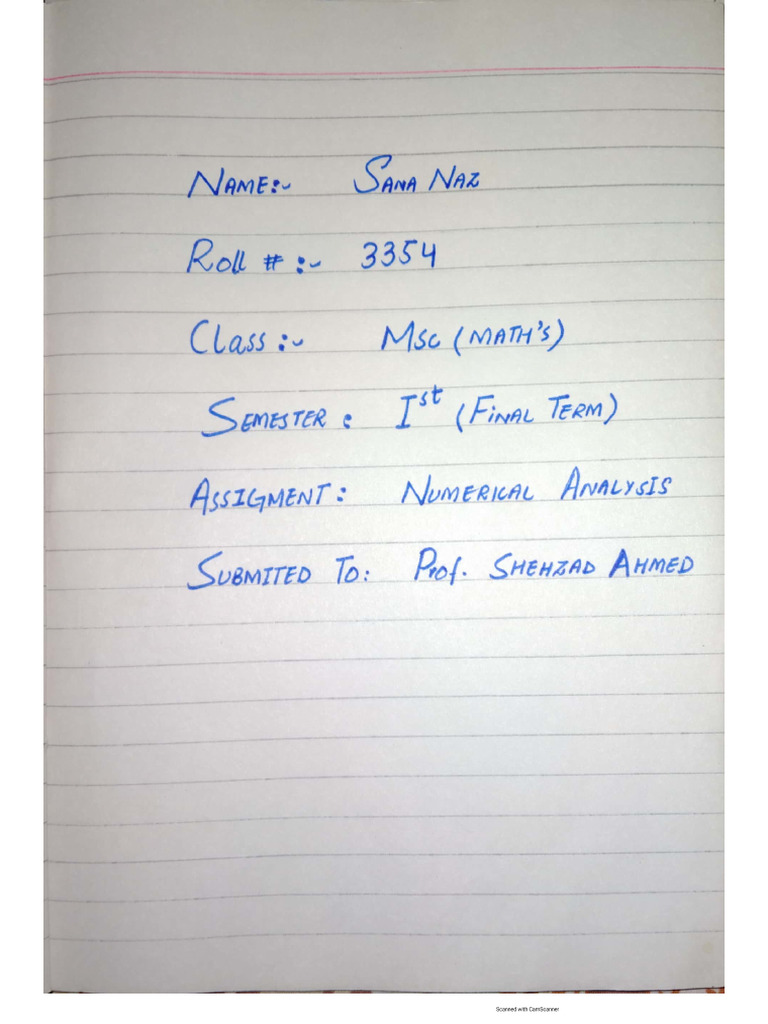 NAME:- SANA NAZ
Roll #:- 3354
Class:- MSC (MATH'S)
SEMESTER: Ist (FINAL TERM)
ASSIGMENT: NUMERICAL ANALYSIS
SUBMITED TO: Prof. SHEHZAD AHMED
Scanned with CamScanner